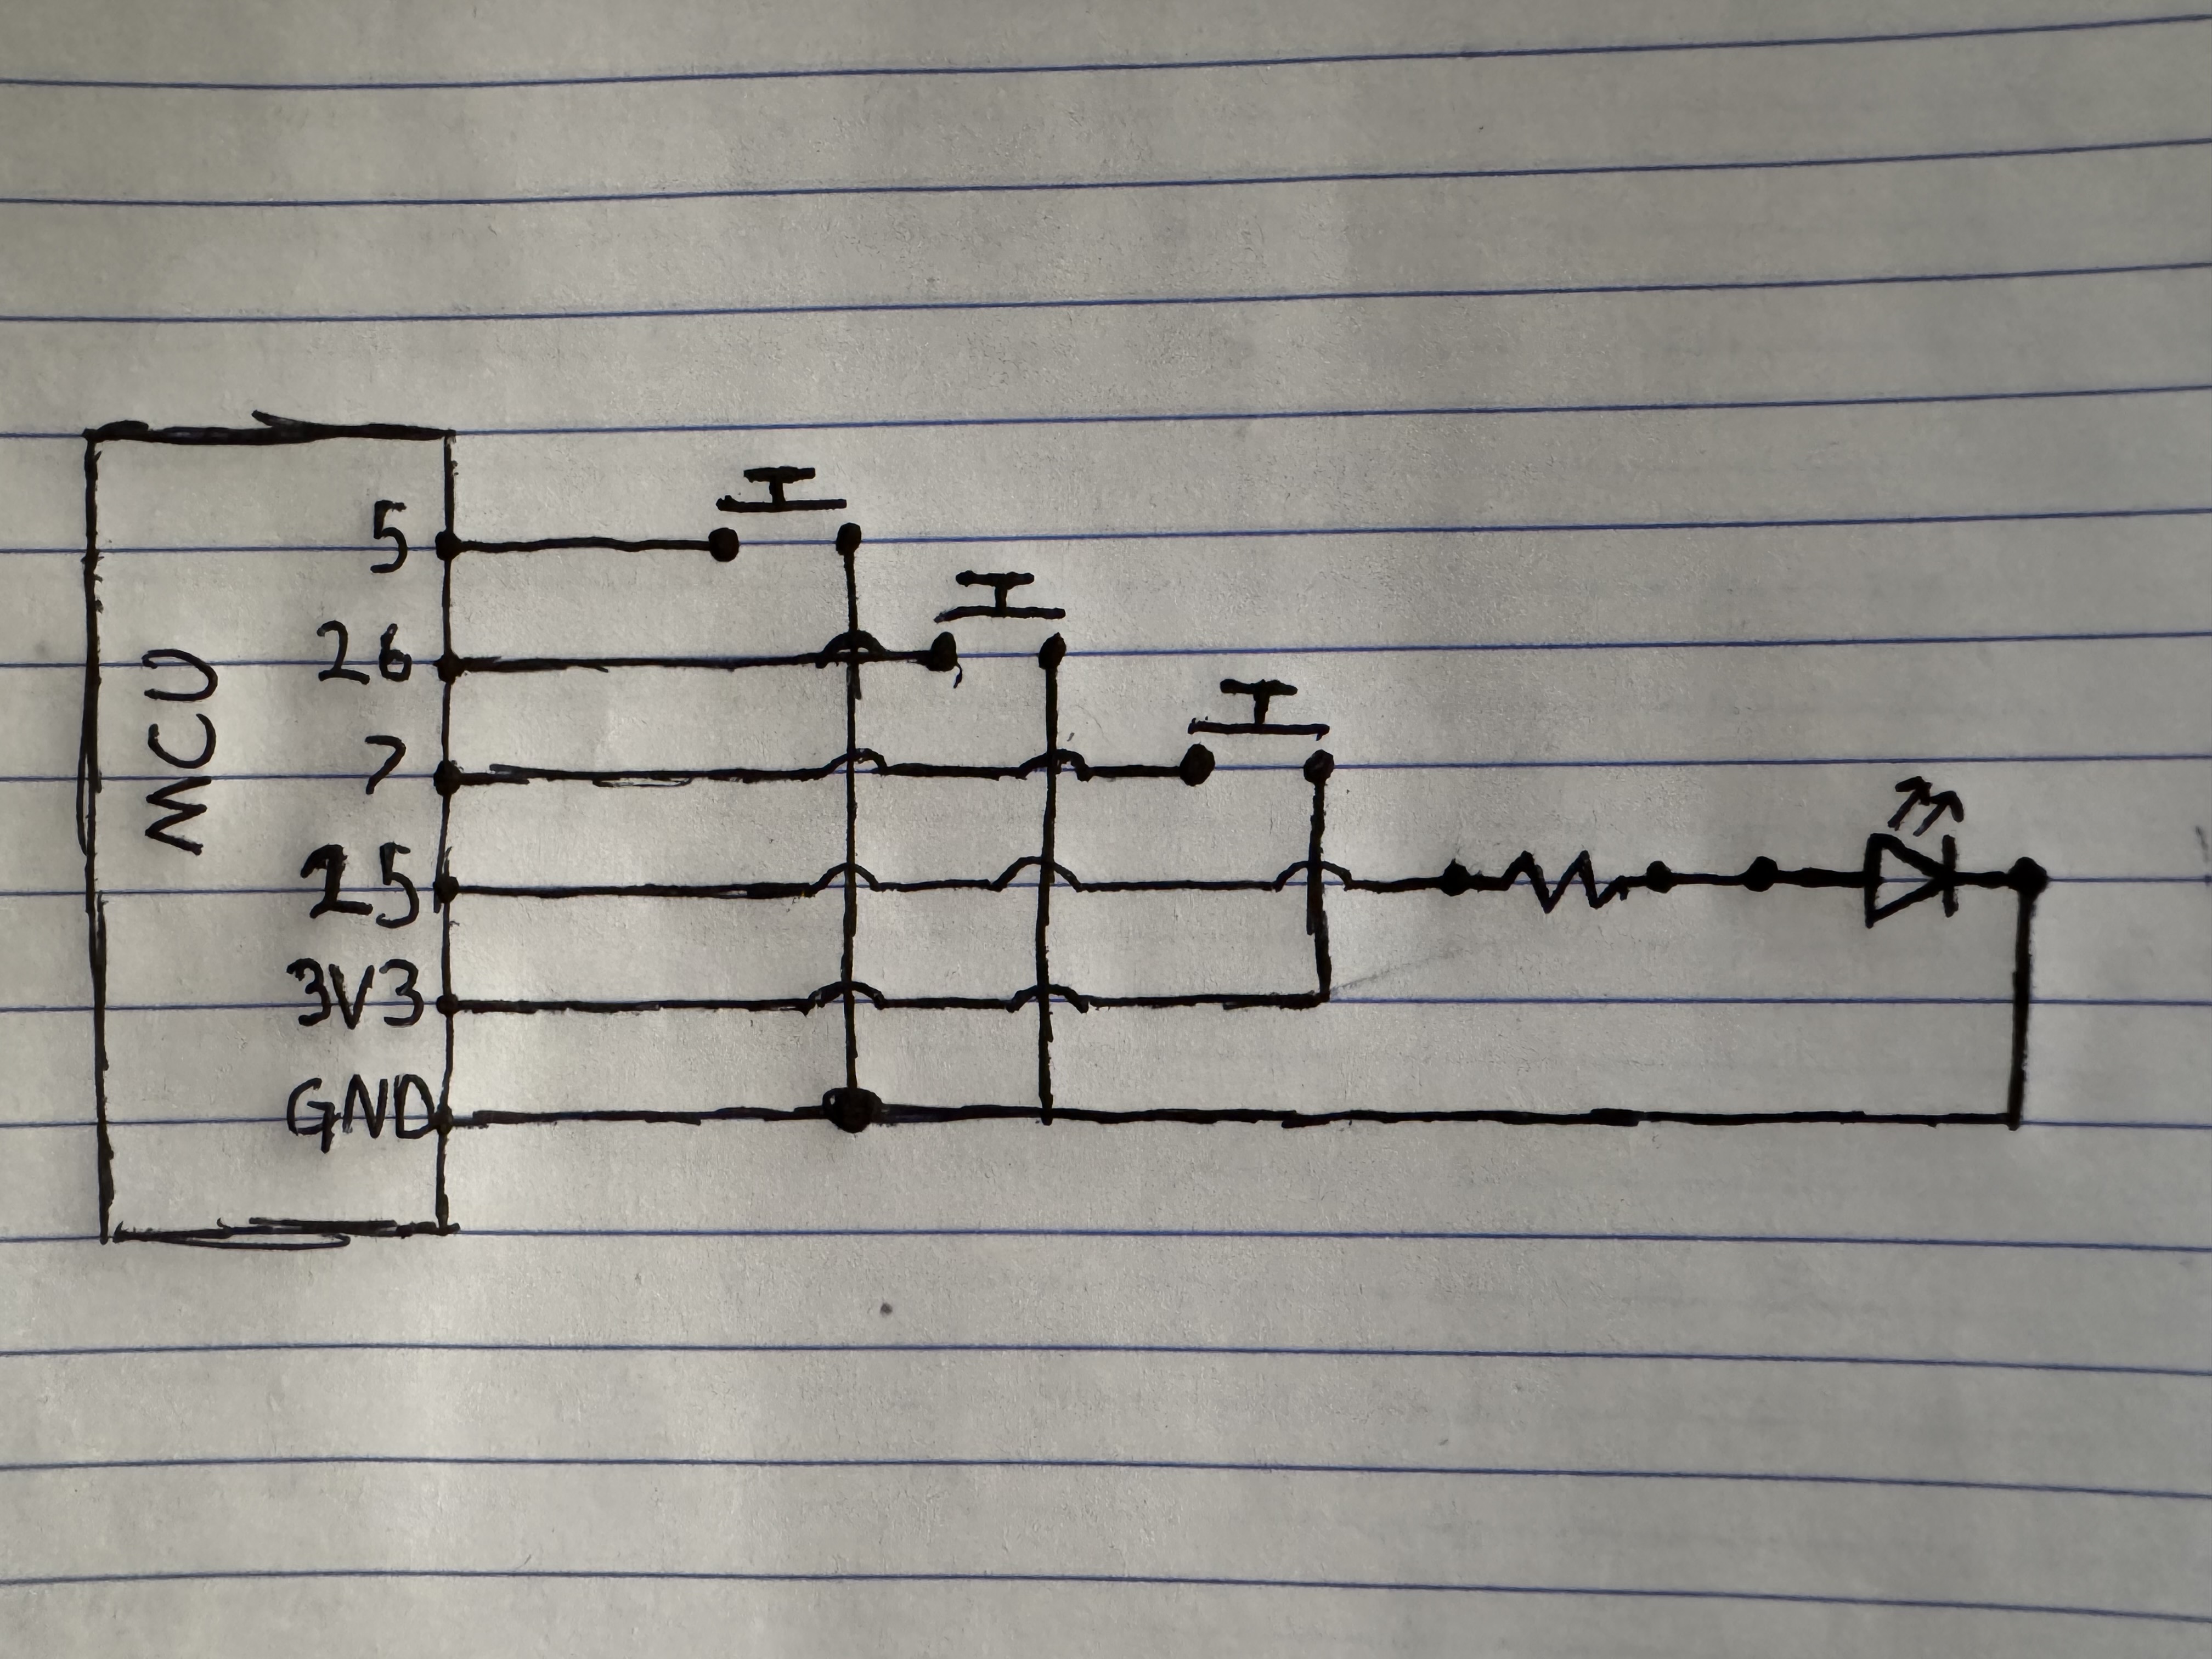 MCU
GND
3V3
25
7
26
5